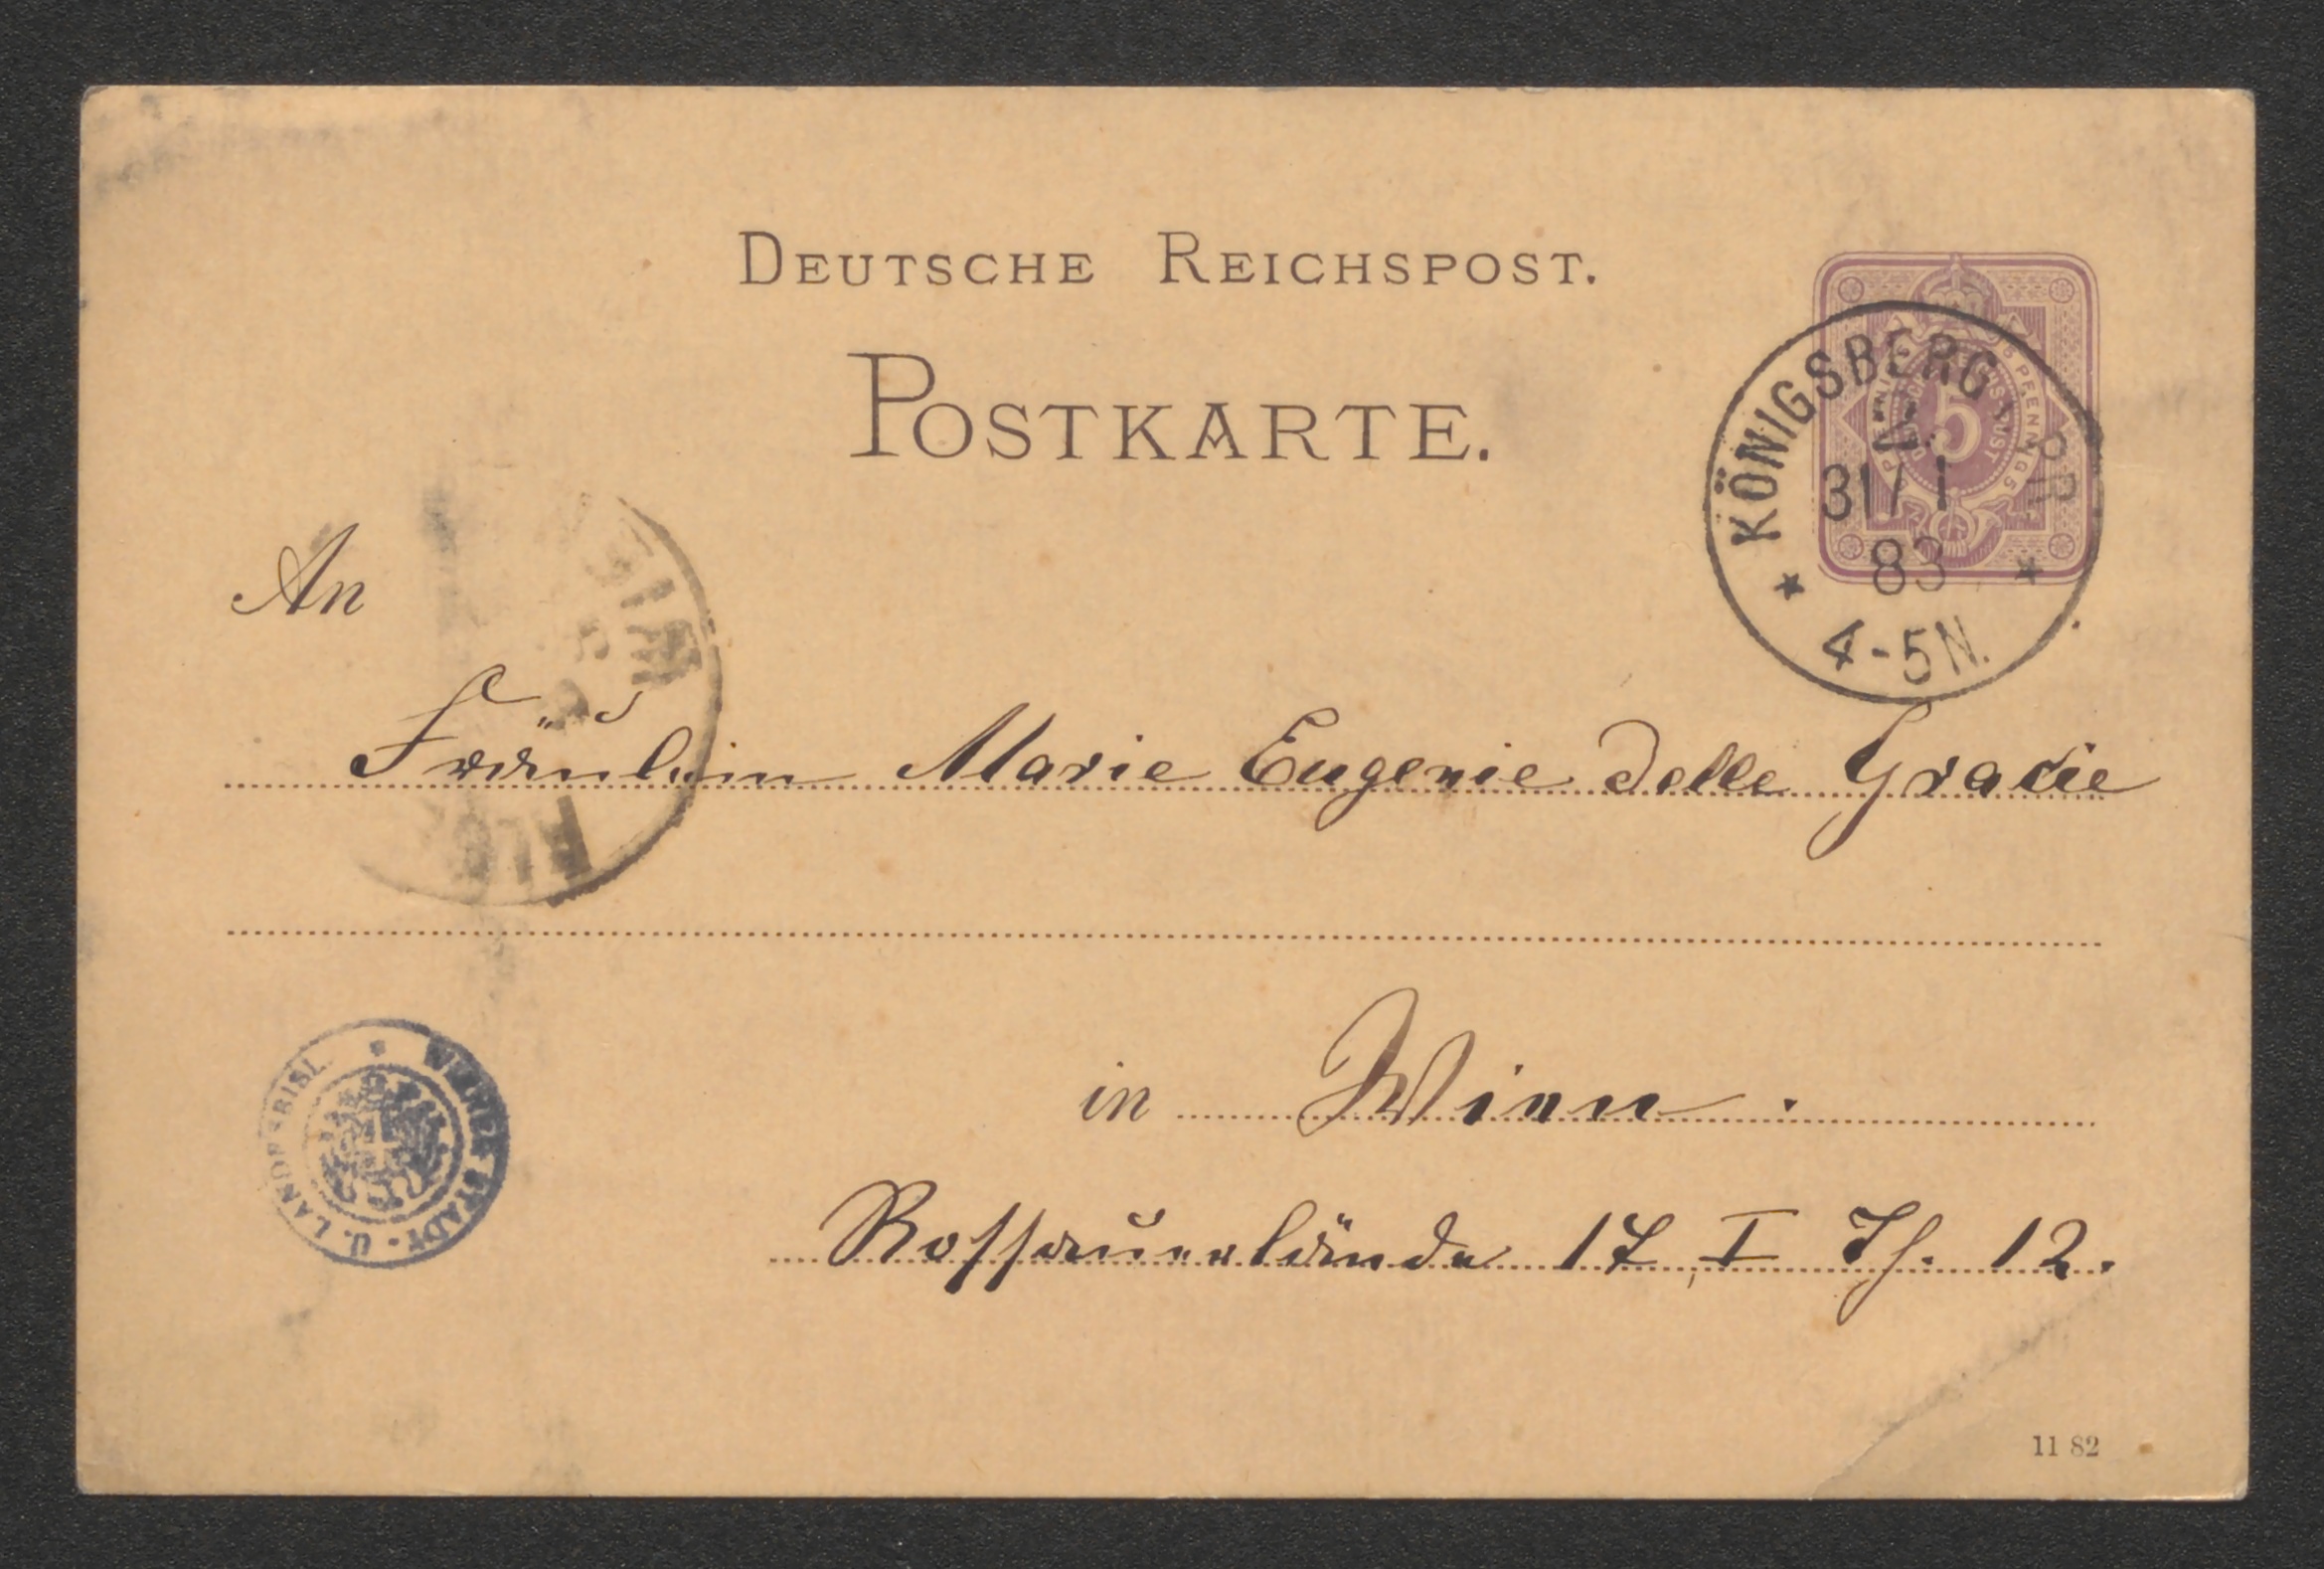 DEUTSCHE REICHSPOST.
POSTKARTE.
KÖNIGSBERG i. PR.
31/1
83
4-5N.
5 PFENNIG 5
An
WIEN
Fräulein Marie Eugenie delle Grazie
in Wien.
WIENER STADT- U. LANDESBIBL.
Rossauerlände 17, I Th. 12.
11 82